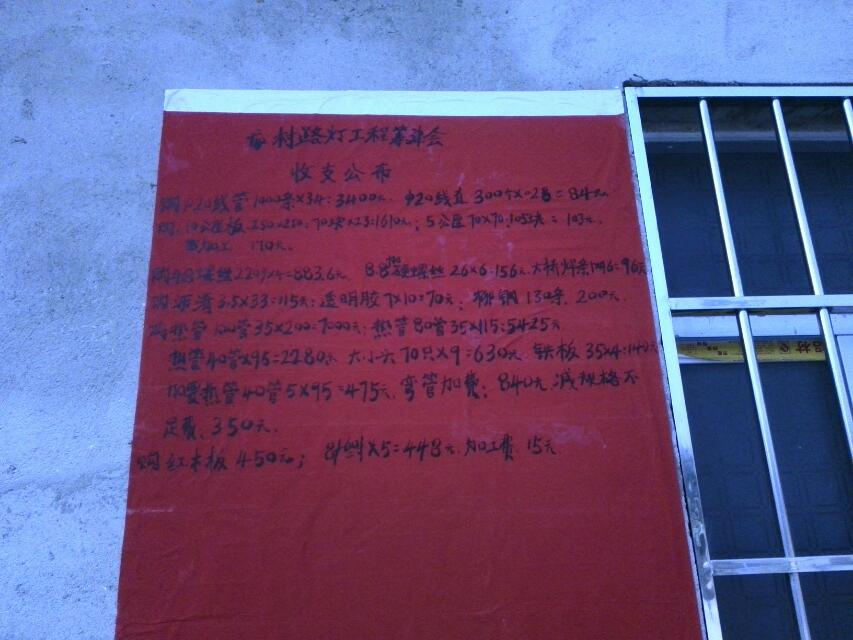 村路灯工程筹建会
收支公布
购P20线管1000条×34=3400元. φ20线直 300个×0.28=84元
购.10公厘板.250×250=70块×23=1610元; 5公厘70×70:105块=103元.
加工 170元.
购48螺丝2209×4=883.6元. 8.8 螺丝26×6=156元.大桥焊条 16=96元
购沥清3.5×33=115元;透明胶7×10=70元. 柳钢130条.200元.
购热管100管35×200=7000元;热管80管35×115=5425元
热管40管×95=2280元 大小头70只×9=630元 铁板35×4=140元
加要热管40管5×95=475元.弯管加费:840元.减规格不
足费.350元.
购红木板450元; ×5=448元.加工费.15元.